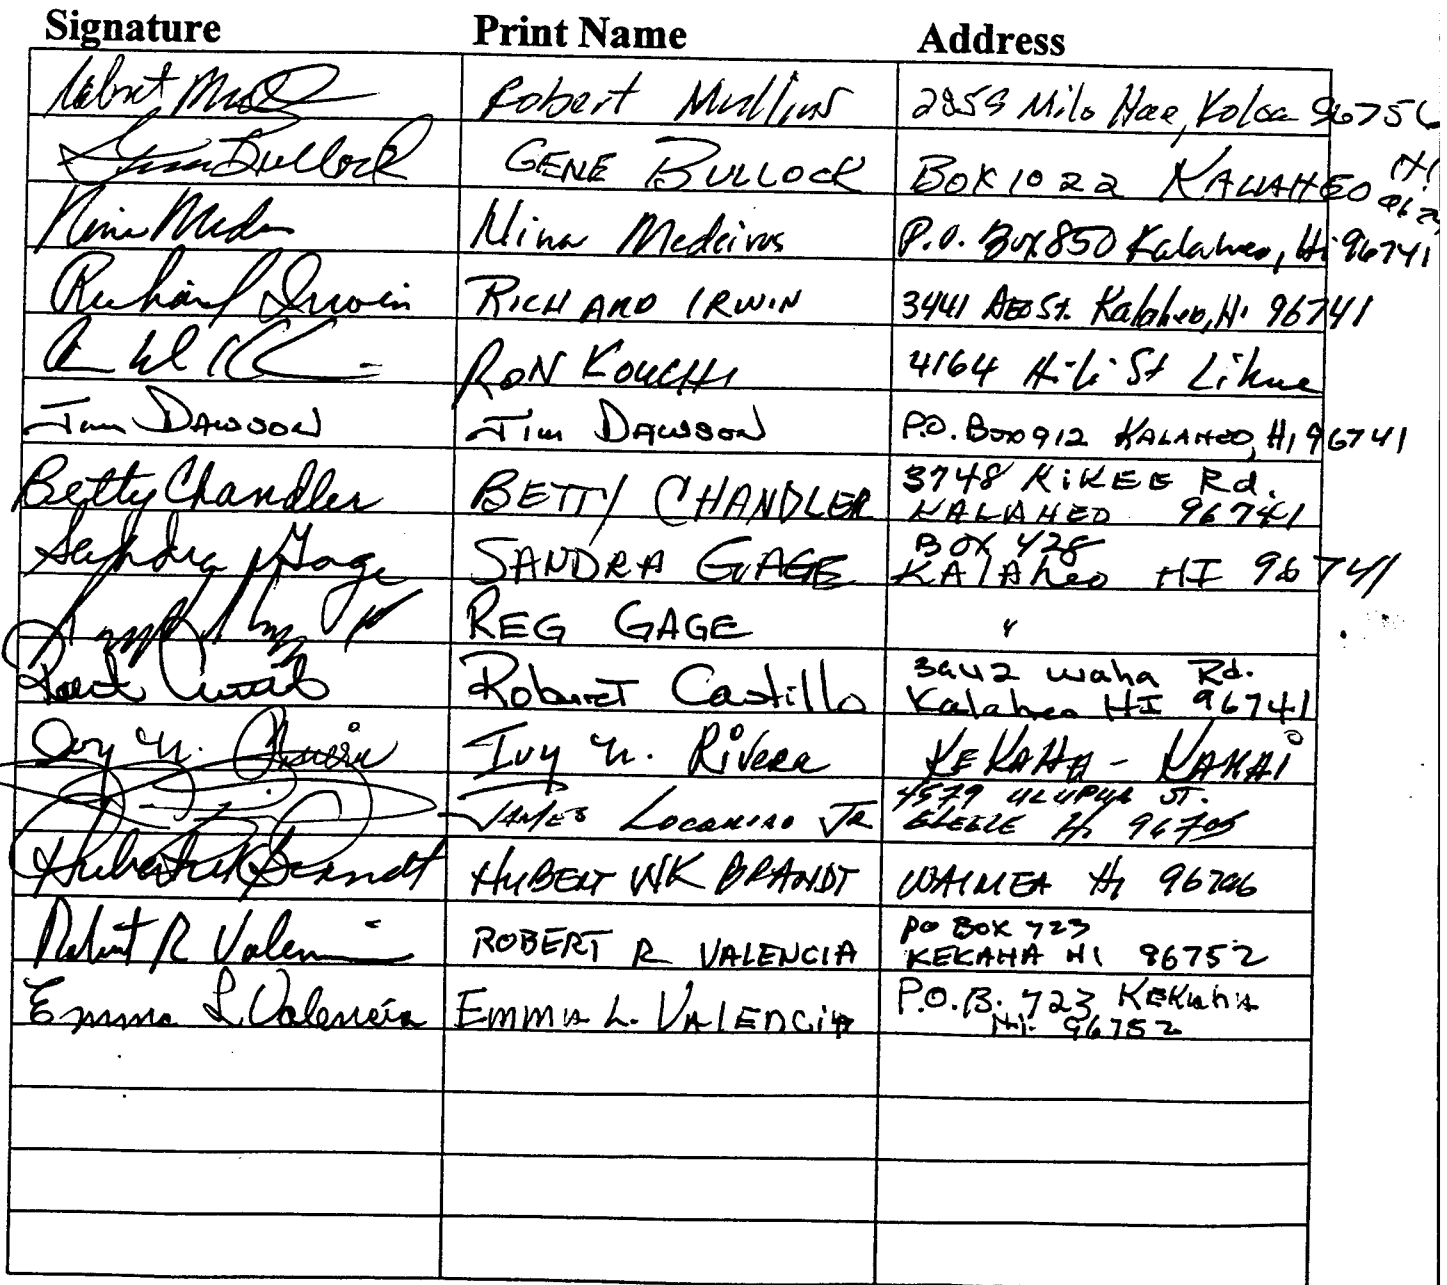 Signature Print Name Address
Robert Mullins 2959 Milo Hae, Koloa 96756
Gene Bullock GENE BULLOCK BOX 1022 KALAHEO HI
Nina Medeiros P.O. Box 850 Kalaheo, Hi 96741
Richard Irwin RICHARD IRWIN 3441 AEO St. Kalaheo, Hi 96741
RON KOUCHI 4164 Hili St Lihue
Jim DAWSON Jim DAWSON P.O. Box 912 KALAHEO, HI 96741
Betty Chandler BETTY CHANDLER 3748 KIKEE Rd.
KALAHEO 96741
Sandra Gage SANDRA GAGE BOX 428
KALAheo HI 96741
REG GAGE "
Robert Castillo 3642 waha Rd.
Kalaheo HI 96741
Ivy N. Rivera Ivy N. Rivera KEKAHA - KAUAI
JAMES Jr 4579 ULUPUA ST.
ELEELE Hi 96705
Hubert WK Brandt HUBERT WK BRANDT WAIMEA Hi 96796
Robert R Valencia ROBERT R VALENCIA PO BOX 723
KEKAHA HI 96752
Emma L. Valencia EMMA L. VALENCIA P.O.B. 723 KEKAHA
HI. 96752